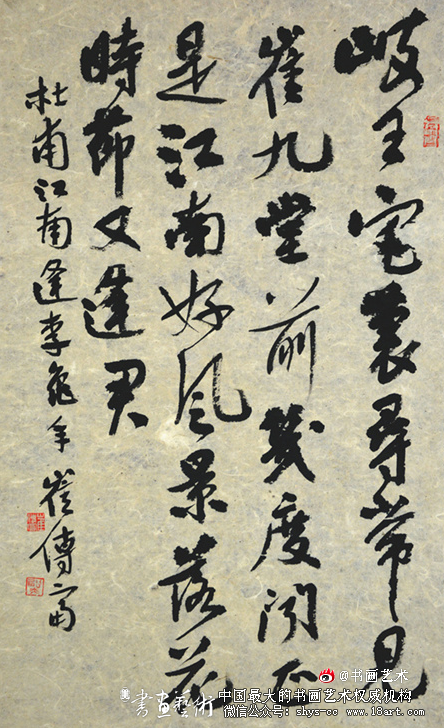 岐王宅裏尋常見
崔九堂前幾度聞正
是江南好風景落花
時節又逢君
杜甫江南逢李龜年 崔傳富
@书画艺术
書畫藝術
中国最大的书画艺术权威机构
微信公众号：shys-cc www.18art.com